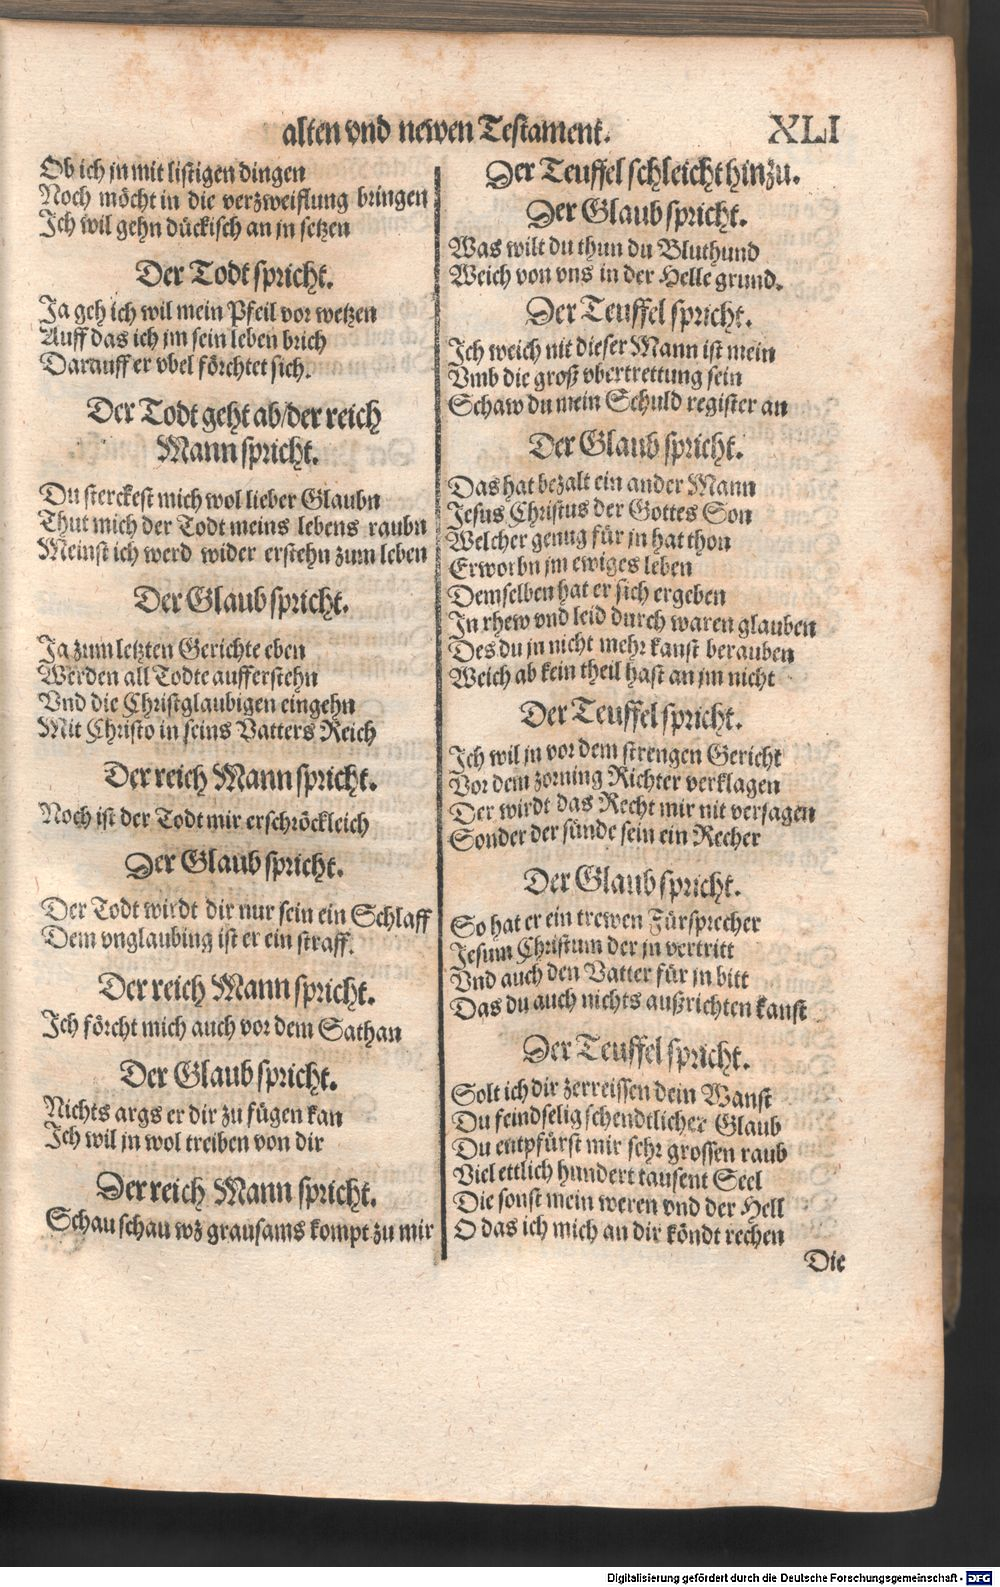 alten vnd newen Testament. XLI
Ob ich jn mit listigen dingen
Noch möcht in die verzweiflung bringen
Ich wil gehn dückisch an jn setzen
Der Todt spricht.
Ja geh ich wil mein Pfeil vor wetzen
Auff das ich jm sein leben brich
Darauff er vbel förchtet sich.
Der Todt geht ab/der reich
Mann spricht.
Du sterckest mich wol lieber Glaubn
Thut mich der Todt meins lebens raubn
Meinst ich werd wider erstehn zum leben
Der Glaub spricht.
Ja zum letzten Gerichte eben
Werden all Todte aufferstehn
Vnd die Christglaubigen eingehn
Mit Christo in seins Vatters Reich
Der reich Mann spricht.
Noch ist der Todt mir erschröckleich
Der Glaub spricht.
Der Todt wirdt dir nur sein ein Schlaff
Dem vnglaubing ist er ein straff.
Der reich Mann spricht.
Ich förcht mich auch vor dem Sathan
Der Glaub spricht.
Nichts args er dir zu fügen kan
Ich wil jn wol treiben von dir
Der reich Mann spricht.
Schau schau wz grausams kompt zu mir
Der Teuffel schleicht hinzu.
Der Glaub spricht.
Was wilt du thun du Bluthund
Weich von vns in der Helle grund.
Der Teuffel spricht.
Ich weich nit dieser Mann ist mein
Vmb die groß vbertrettung sein
Schaw du mein Schuld register an
Der Glaub spricht.
Das hat bezalt ein ander Mann
Jesus Christus der Gottes Son
Welcher genug für jn hat thon
Erworbn jm ewiges leben
Demselben hat er sich ergeben
In rhew vnd leid durch waren glauben
Des du jn nicht mehr kanst berauben
Weich ab kein theil hast an jm nicht
Der Teuffel spricht.
Ich wil jn vor dem strengen Gericht
Vor dem zorning Richter verklagen
Der wirdt das Recht mir nit versagen
Sonder der sünde sein ein Recher
Der Glaub spricht.
So hat er ein trewen Fürsprecher
Jesum Christum der jn vertritt
Vnd auch den Vatter für jn bitt
Das du auch nichts außrichten kanst
Der Teuffel spricht.
Solt ich dir zerreissen dein Wanst
Du feindselig schendtlicher Glaub
Du entpfürst mir sehr grossen raub
Viel ettlich hundert tausent Seel
Die sonst mein weren vnd der Hell
O das ich mich an dir köndt rechen
Die
Digitalisierung gefördert durch die Deutsche Forschungsgemeinschaft - DFG